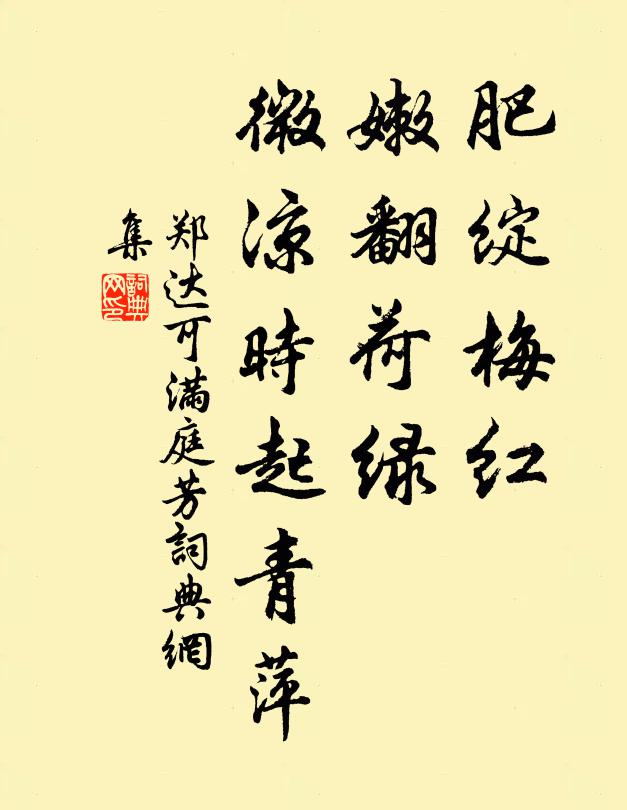 肥绽梅红
嫩翻荷绿
微凉時起青萍
郑达可满庭芳詞典網
集
詞典
网印